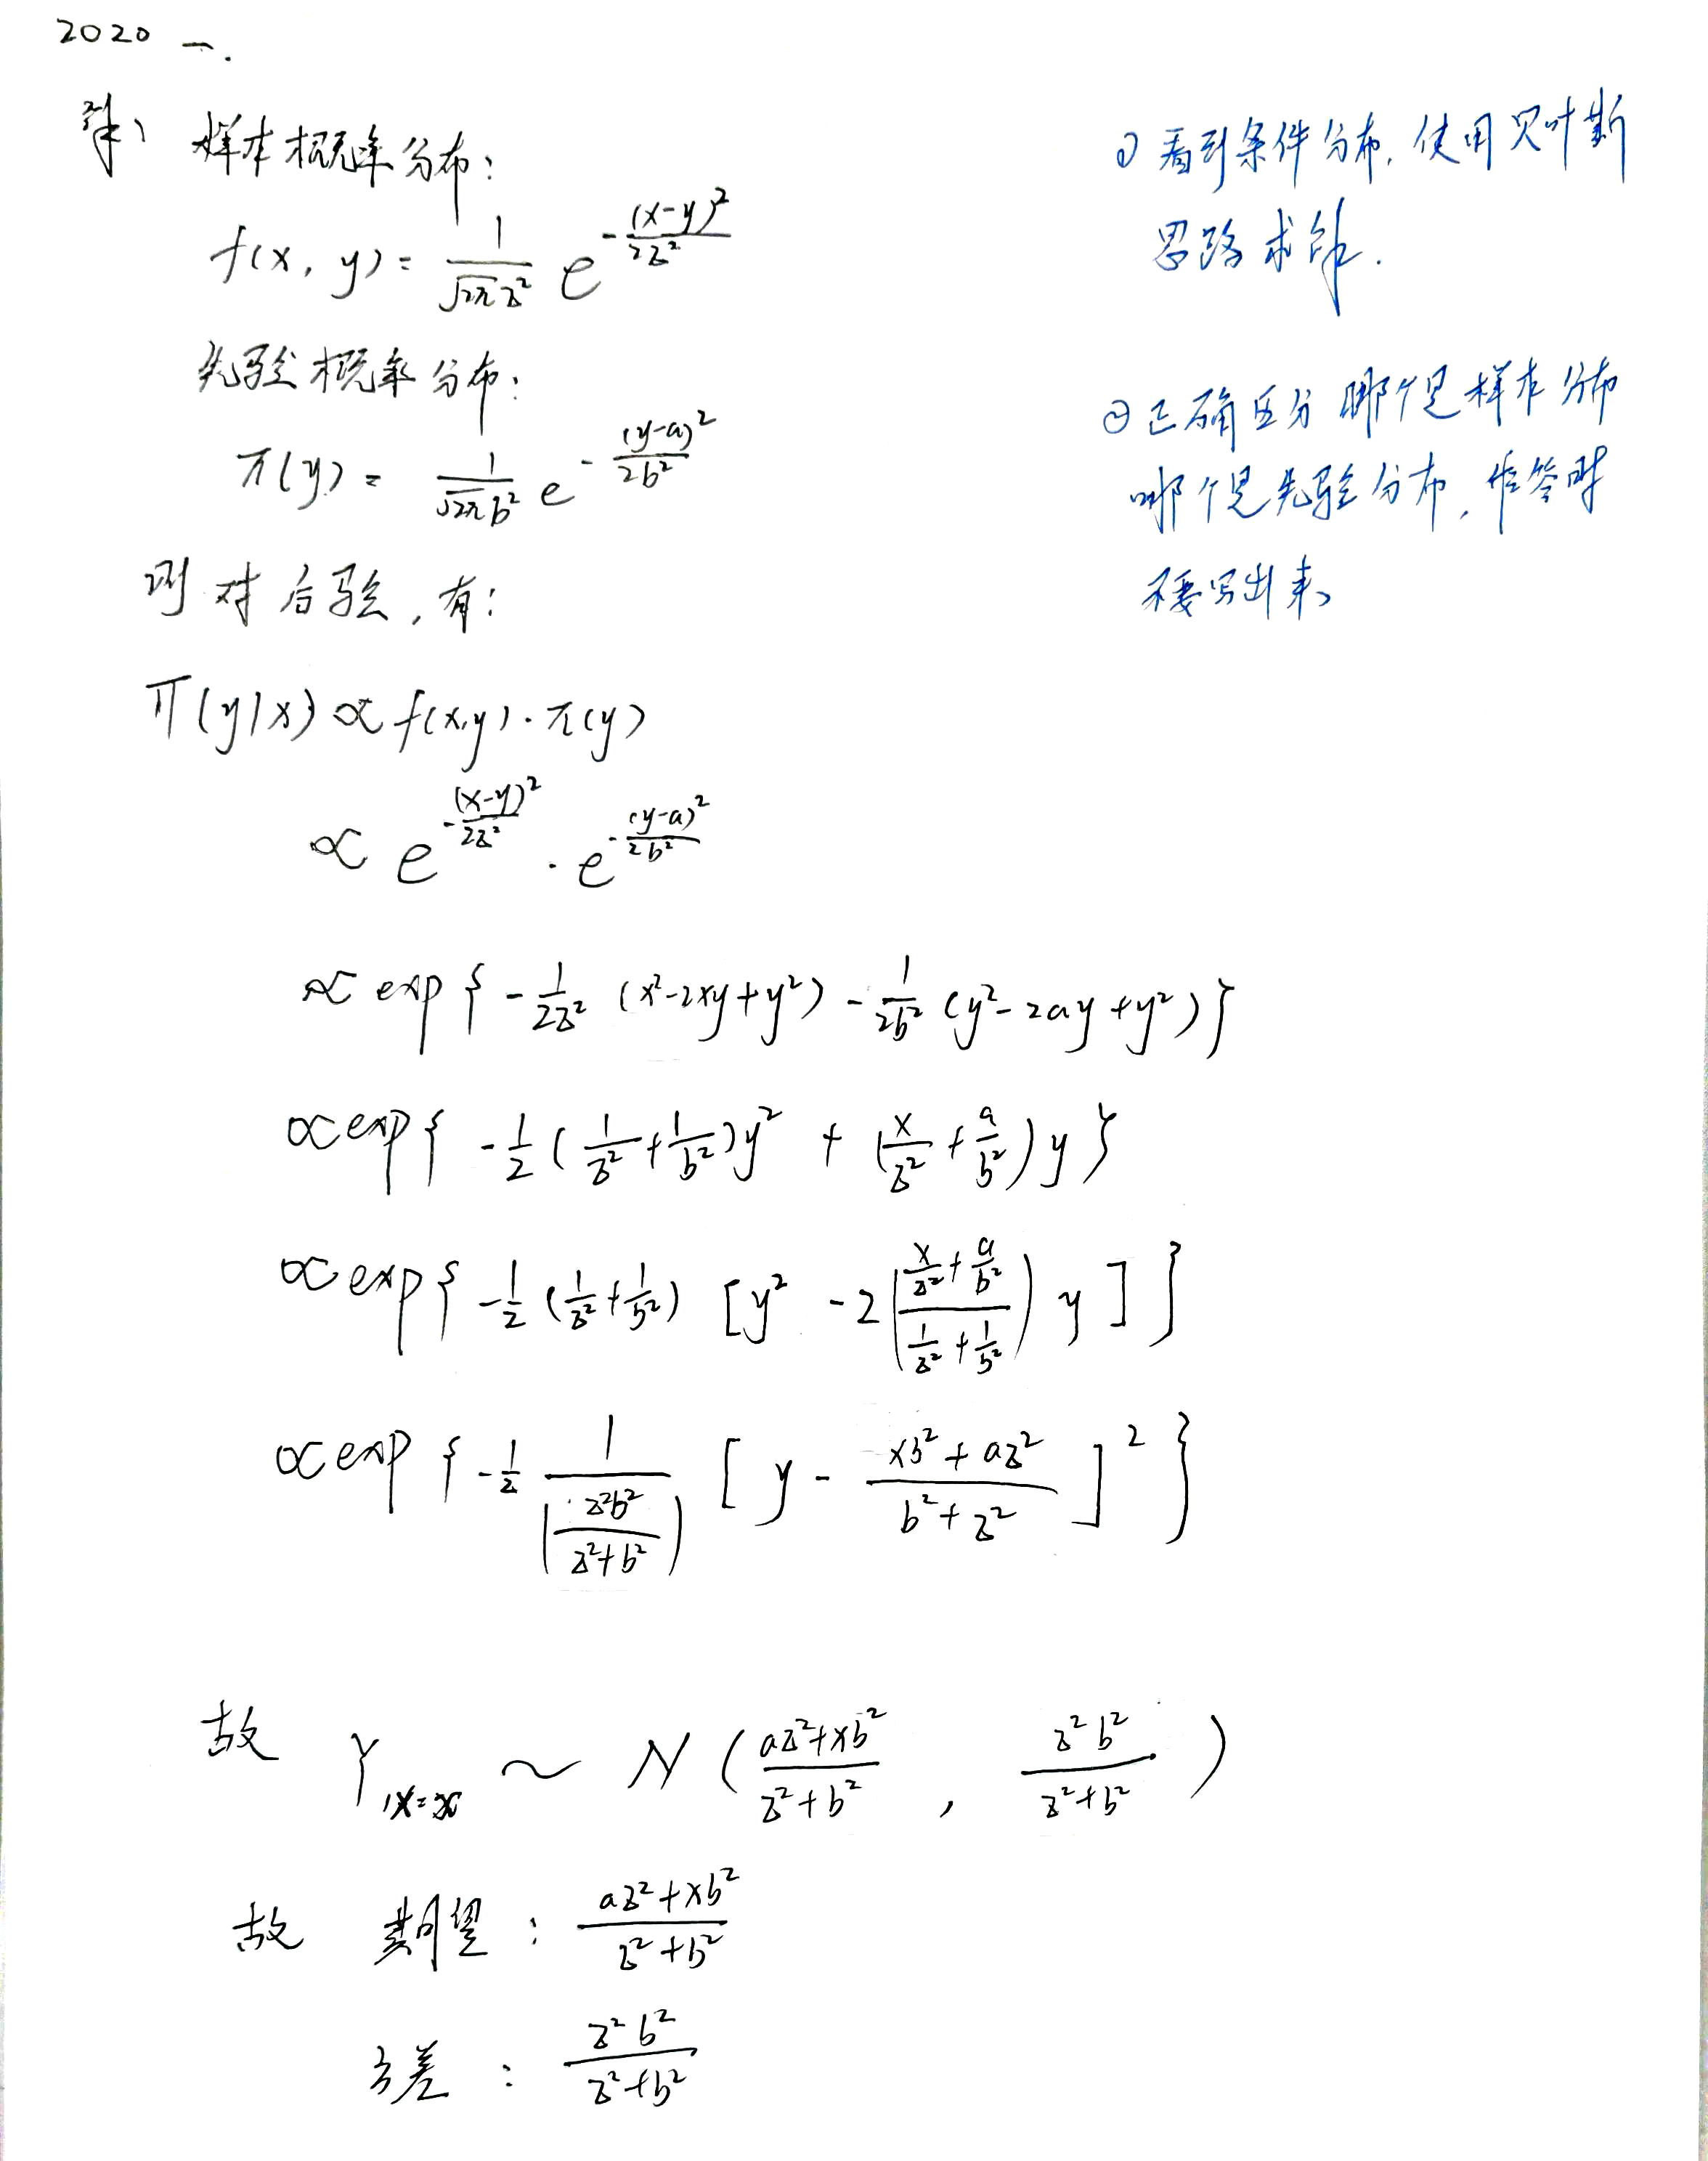 2020 一.
解: 样本概率分布:
f(x, y) = \frac{1}{\sqrt{2π}z^2} e^{-\frac{(x-y)^2}{2z^2}}
先验概率分布:
π(y) = \frac{1}{\sqrt{2π}b^2} e^{-\frac{(y-a)^2}{2b^2}}
则对后验,有:
π(y|x) ∝ f(x,y)·π(y)
∝ e^{-\frac{(x-y)^2}{2z^2}} · e^{-\frac{(y-a)^2}{2b^2}}
∝ exp{ -\frac{1}{2z^2} (x^2-2xy+y^2) - \frac{1}{2b^2} (y^2-2ay+y^2) }
∝ exp{ -\frac{1}{2} (\frac{1}{z^2}+\frac{1}{b^2}) y^2 + (\frac{x}{z^2}+\frac{a}{b^2}) y }
∝ exp{ -\frac{1}{2} (\frac{1}{z^2}+\frac{1}{b^2}) [ y^2 - 2(\frac{\frac{x}{z^2}+\frac{a}{b^2}}{\frac{1}{z^2}+\frac{1}{b^2}}) y ] }
∝ exp{ -\frac{1}{2} \frac{1}{(\frac{z^2b^2}{z^2+b^2})} [ y - \frac{xb^2+az^2}{b^2+z^2} ]^2 }
故 Y_{|X=x} ~ N( \frac{az^2+xb^2}{z^2+b^2} , \frac{z^2b^2}{z^2+b^2} )
故 期望: \frac{az^2+xb^2}{z^2+b^2}
方差: \frac{z^2b^2}{z^2+b^2}
① 看到条件分布, 使用贝叶斯
思路求解.
② 正确区分哪个是样本分布
哪个是先验分布, 作答时
要写出来